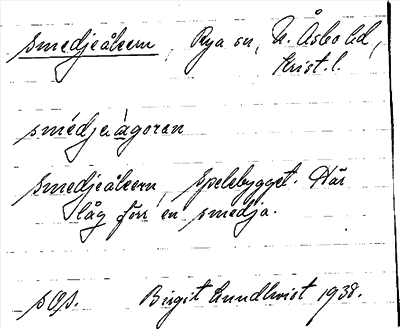 smedjeåkern, Rya sn, N. Åsbo hd,
Krist. l.
smédjeàgoran
smedjeåkern, spelebygget. Här
låg förr en smedja.
sOs. Birgit Lundkvist 1938.